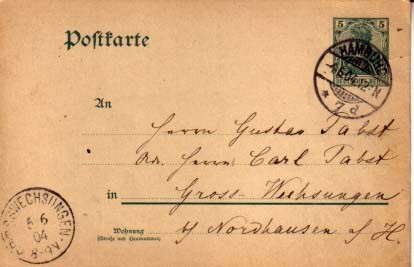 Postkarte
5
HAMBURG
7 d
An
Herrn Gustav Tabst
Adr. Herrn Carl Tabst
in Gross Wechsungen
Wohnung
(Straße und Hausnummer)
b/ Nordhausen a/H.
GROSSWECHSUNGEN
6
04
8-9